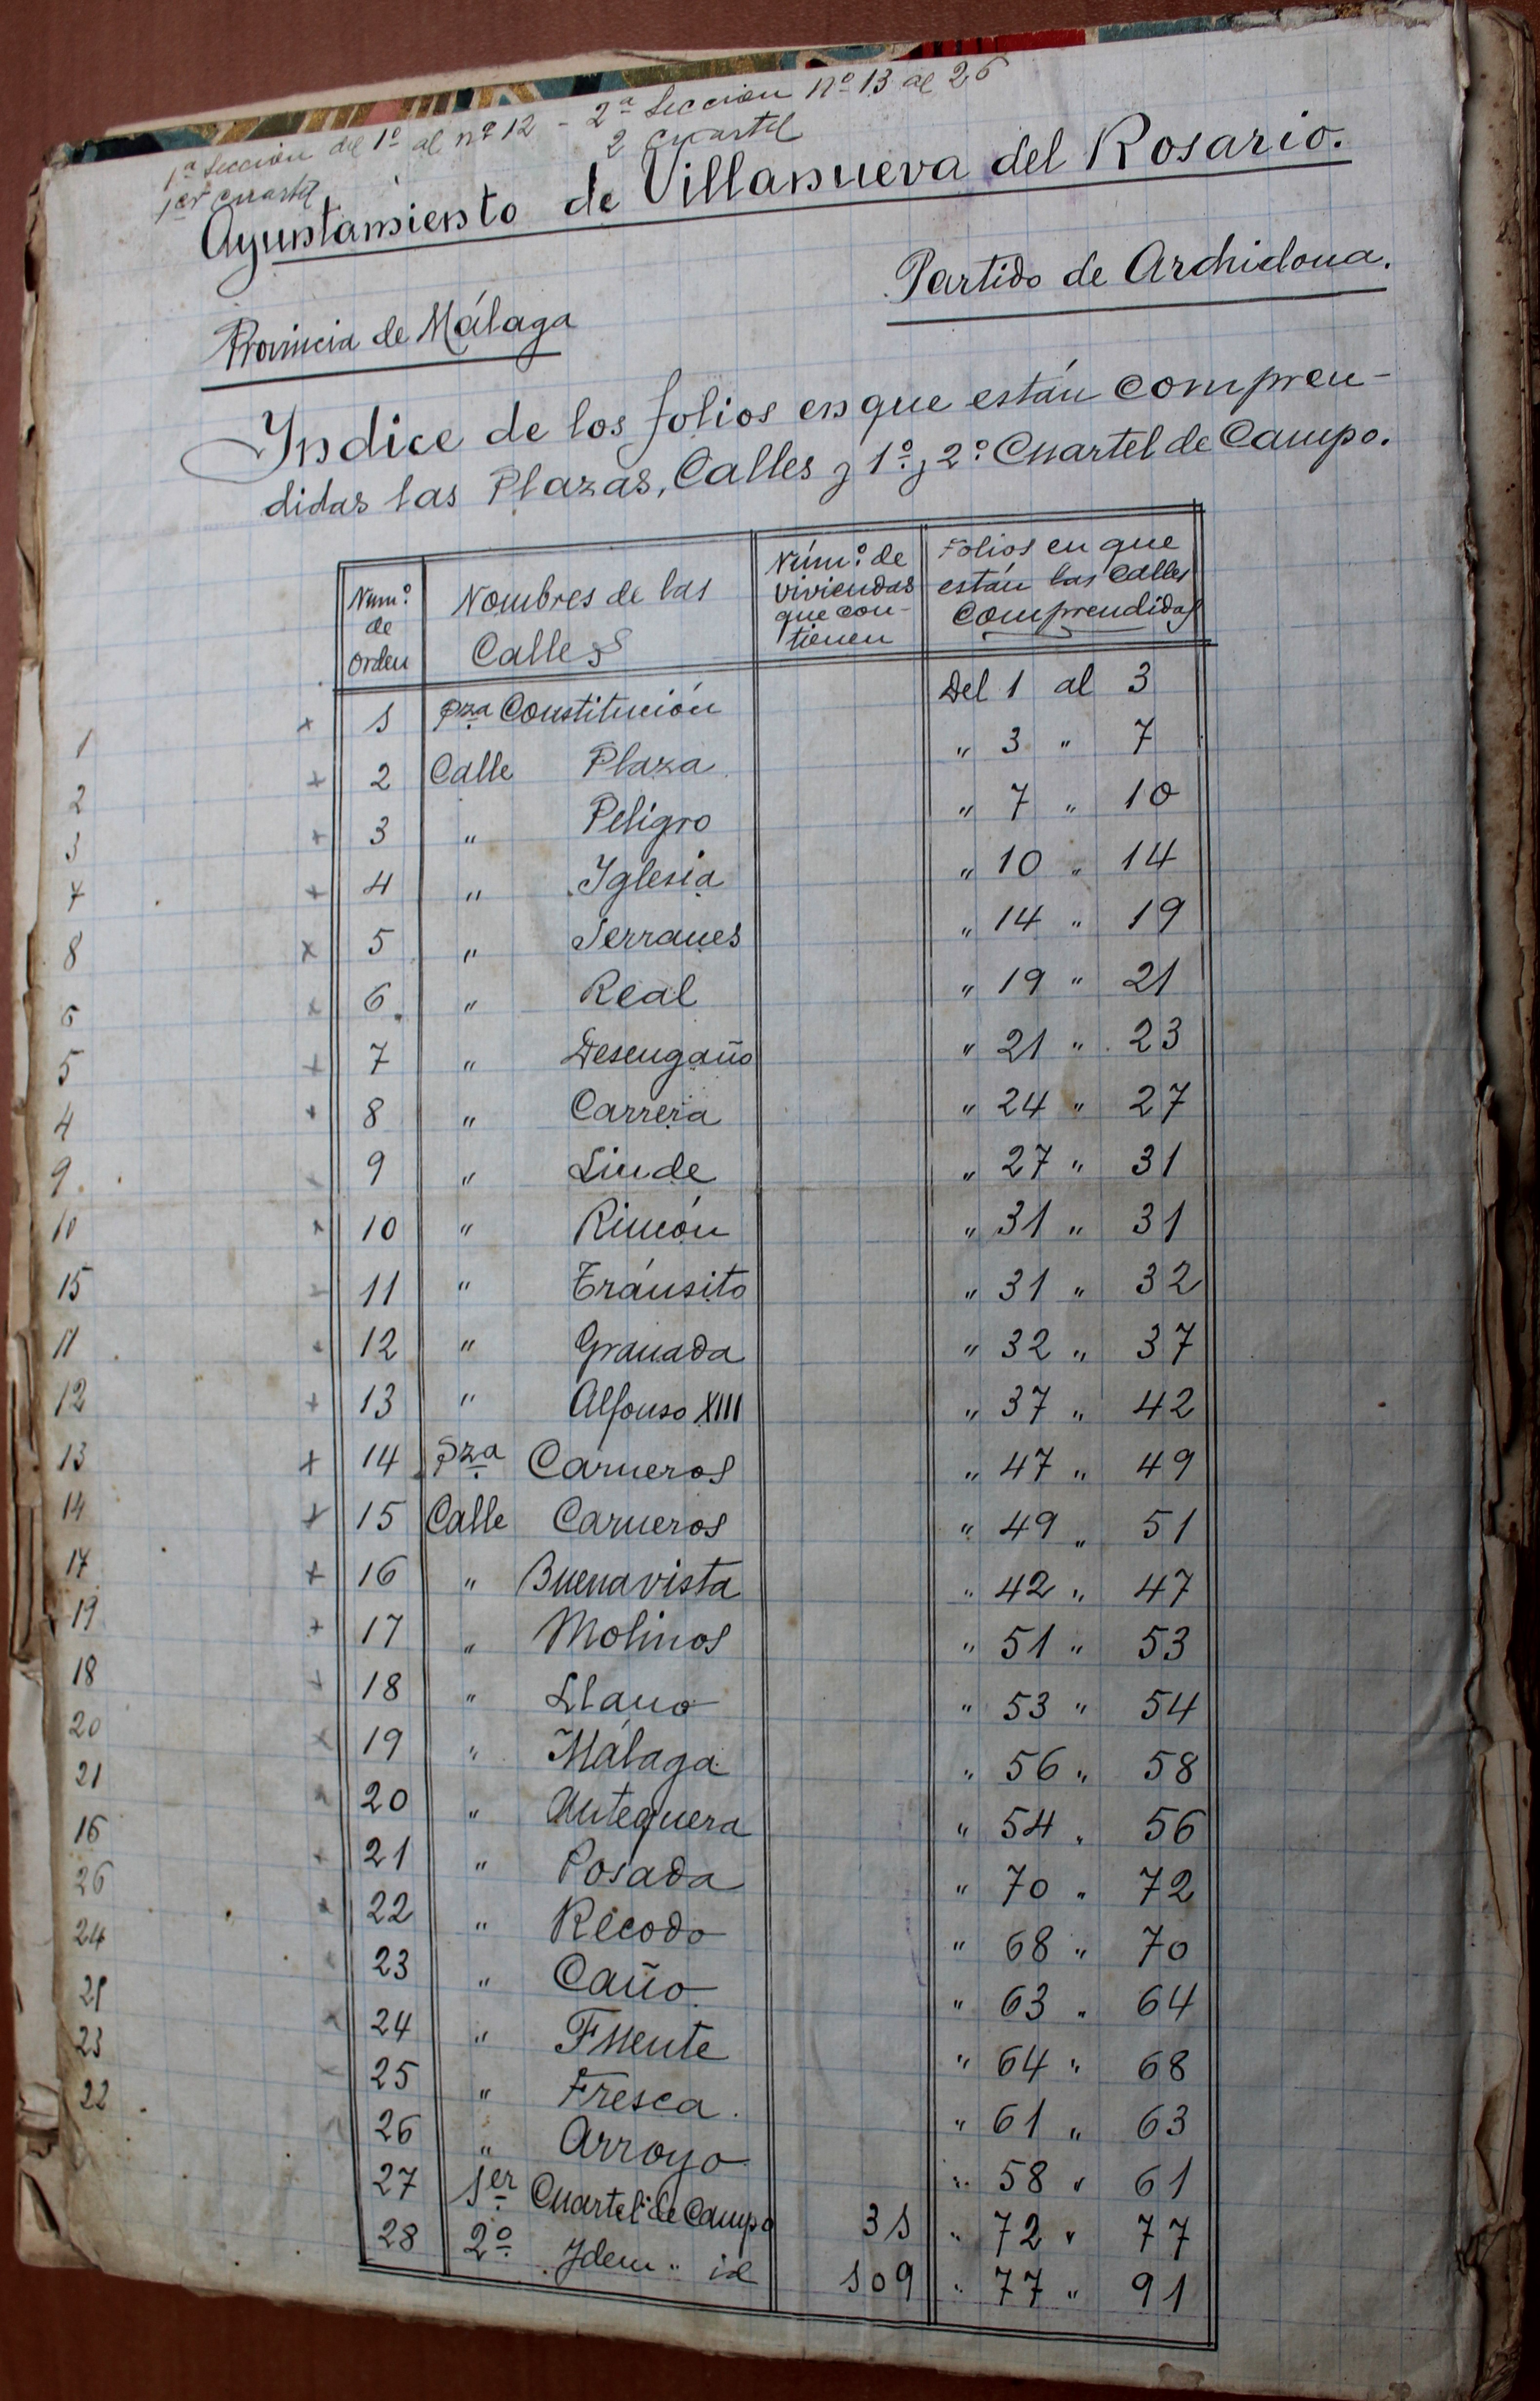 1ª Sección del 1º al nº 12 - 2ª Sección nº 13 al 26
1er cuartel 2 cuartel
Ayuntamiento de Villanueva del Rosario.
Partido de Archidona.
Provincia de Málaga
Yndice de los folios en que están compren-
didas las Plazas, Calles y 1º y 2º Cuartel de Campo.
Núm.º de orden Nombres de las Calles Núm.º de viviendas que contienen Folios en que están las Calles Comprendidas
1 × 1 Pza Constitución Del 1 al 3
2 × 2 Calle Plaza " 3 " 7
3 × 3 " Peligro " 7 " 10
7 × 4 " Yglesia " 10 " 14
8 × 5 " Terrones " 14 " 19
6 × 6 " Real " 19 " 21
5 × 7 " Desengaño " 21 " 23
4 × 8 " Carrera " 24 " 27
9 9 " Linde " 27 " 31
10 × 10 " Rincón " 31 " 31
15 × 11 " Tránsito " 31 " 32
11 × 12 " Granada " 32 " 37
12 × 13 " Alfonso XIII " 37 " 42
13 × 14 Pza Carneros " 47 " 49
14 × 15 Calle Carneros " 49 " 51
17 × 16 " Buenavista " 42 " 47
19 × 17 " Molinos " 51 " 53
18 × 18 " Llano " 53 " 54
20 × 19 " Málaga " 56 " 58
21 × 20 " Antequera " 54 " 56
16 × 21 " Posada " 70 " 72
26 × 22 " Recodo " 68 " 70
24 × 23 " Caño " 63 " 64
25 × 24 " Fuente " 64 " 68
23 × 25 " Fresca " 61 " 63
22 × 26 " Arroyo " 58 " 61
27 1er Cuartel de Campo 31 " 72 " 77
28 2º Ydem " id 109 " 77 " 91